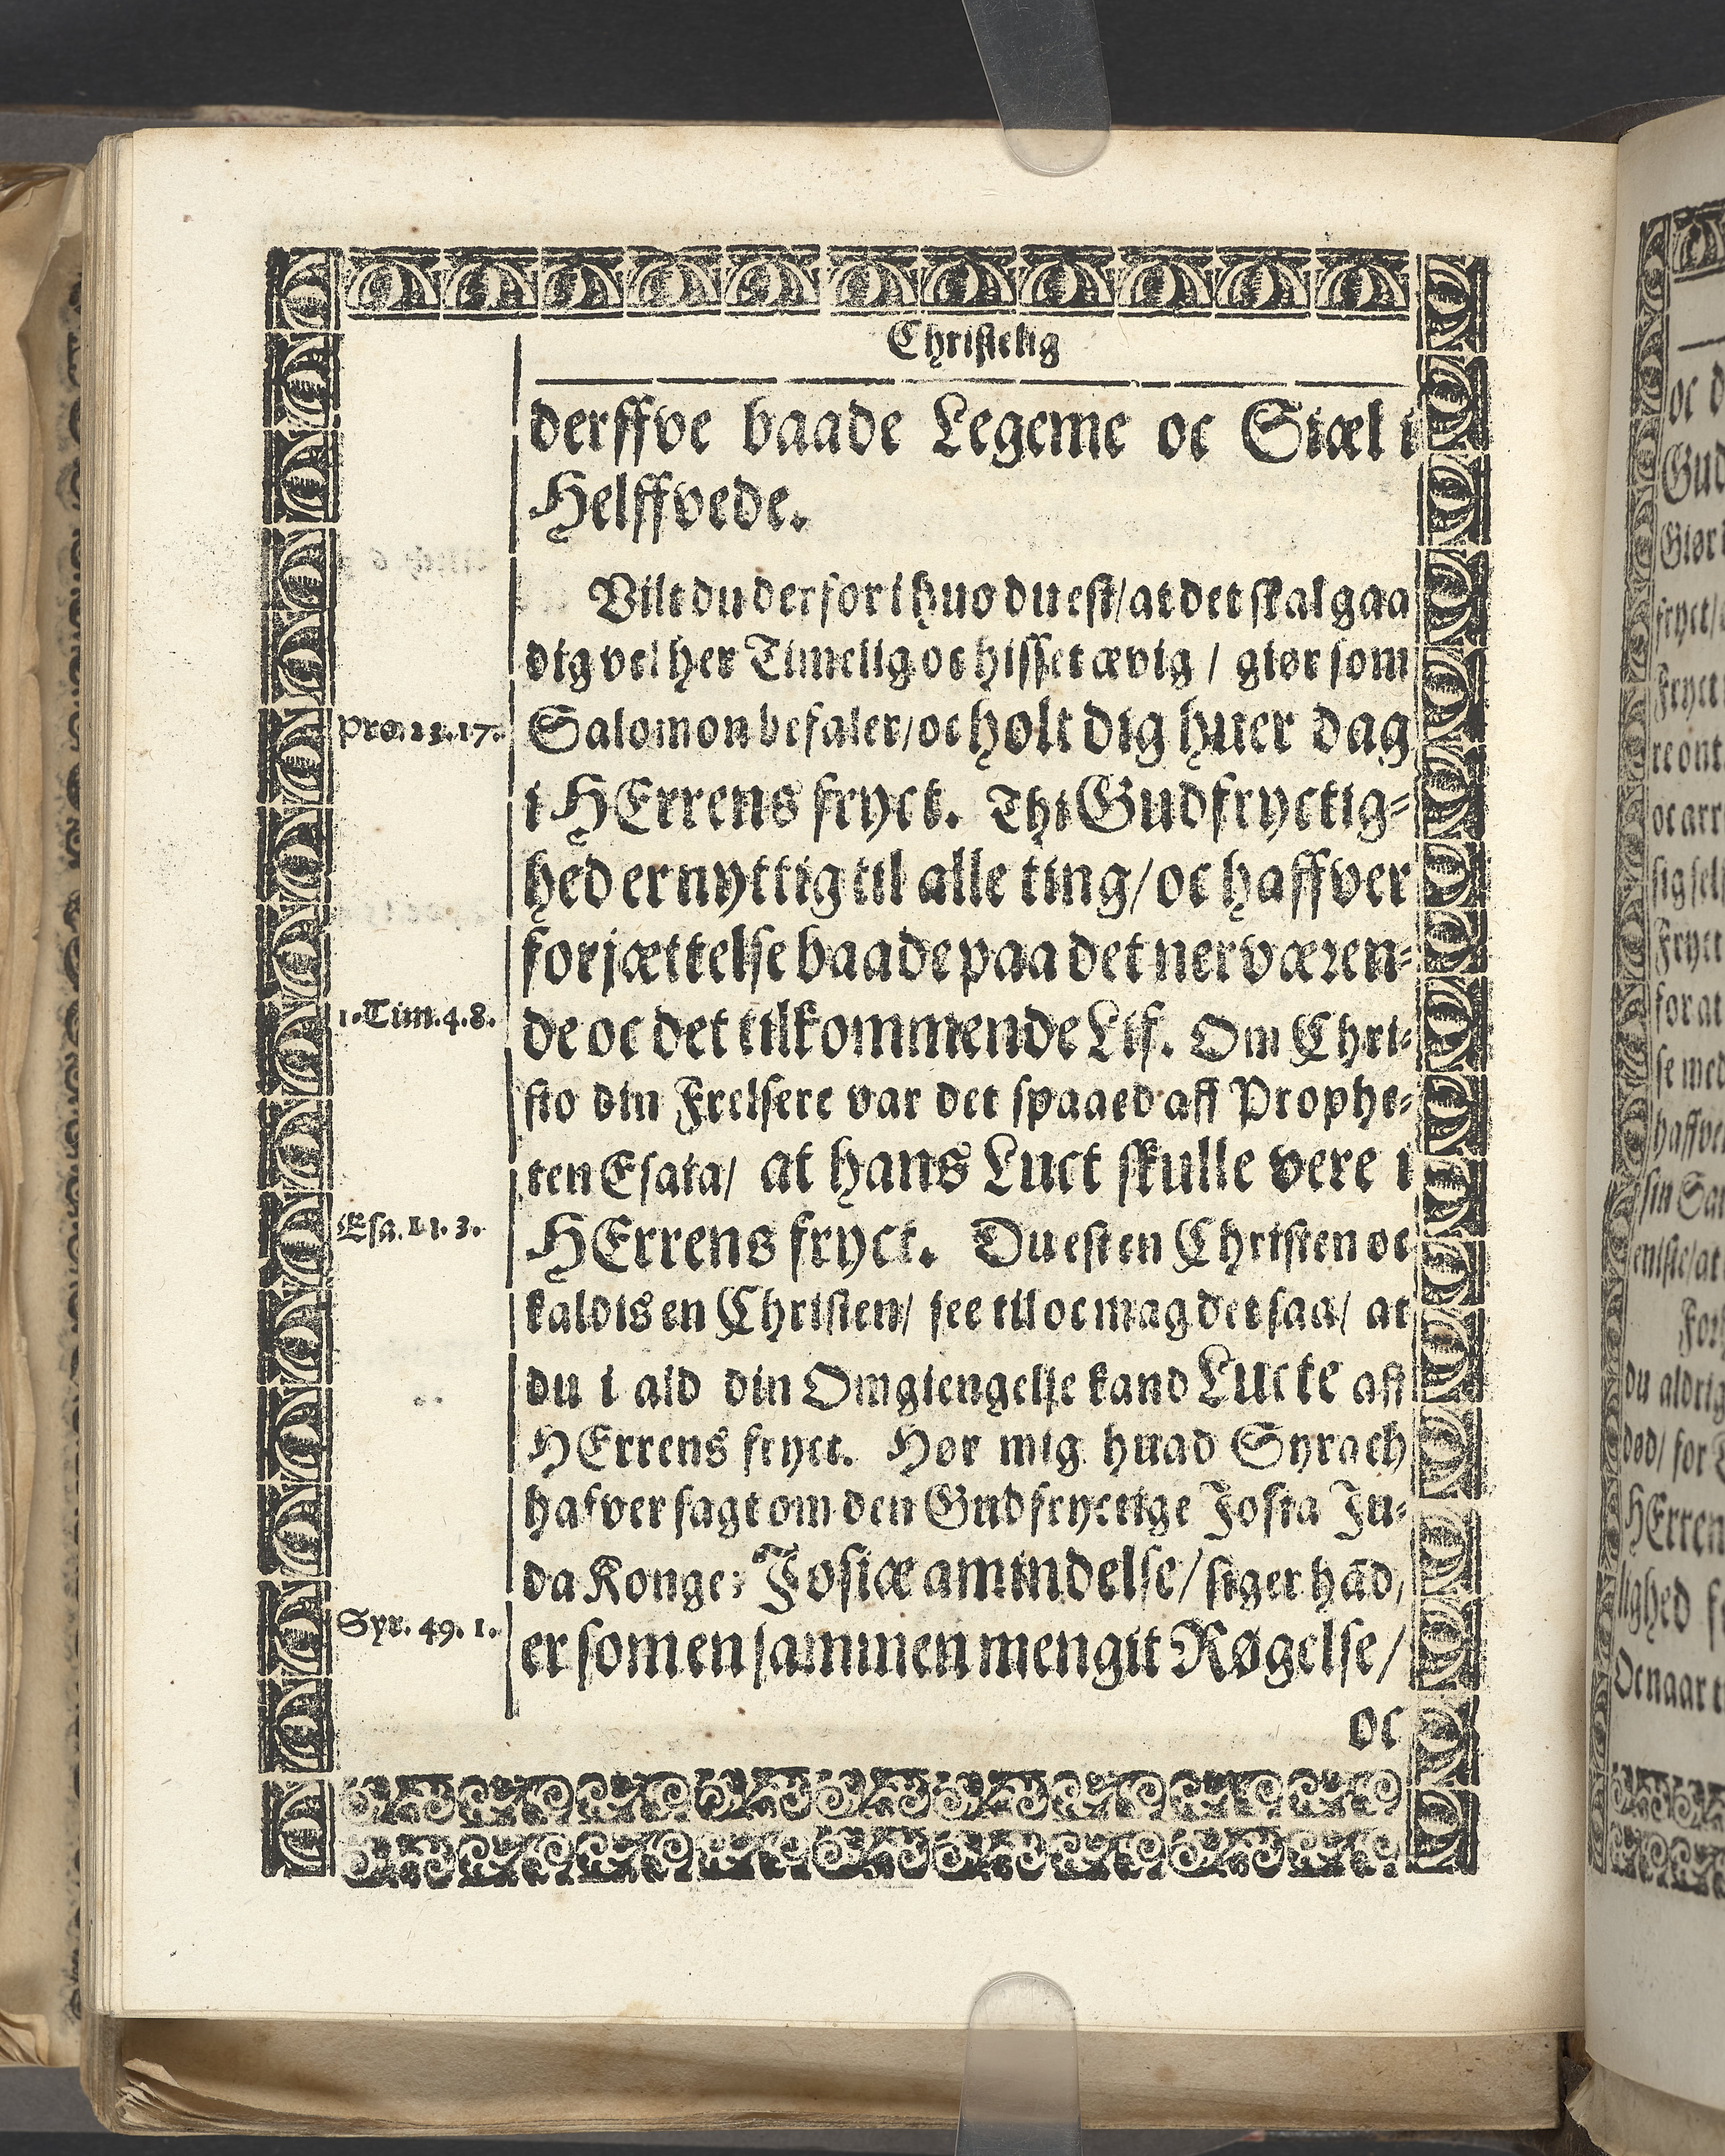 Christelig
derffve baade Legeme oc Siæl i
Helffvede.
Vilt du derfor i huo du est/ at det skal gaa
dig vel her Timelig oc hisset ævig / giør som
Pro. 23. 17.
Salomon befaler/ oc holt dig huer dag
i HErrens fryct. Thi Gudfryctig⸗
hed er nyttig til alle ting/ oc haffver
forjættelse baade paa det nerværen⸗
1. Tim. 4. 8.
de oc det tilkommende Lif. Om Chri⸗
sto din Frelsere var det spaaed aff Prophe⸗
ten Esaia/ at hans Luct skulle vere i
Esa. 11. 3.
HErrens fryct. Du est en Christen oc
kaldis en Christen/ see til oc mag det saa/ at
du i ald din Omgiengelse kand Lucte aff
HErrens fryct. Hør mig huad Syrach
hafver sagt om den Gudfryctige Josia Ju⸗
da Konge: Josiæ amindelse/ siger hād/
Syr. 49. 1.
er som en sammen mengit Røgelse/
oc